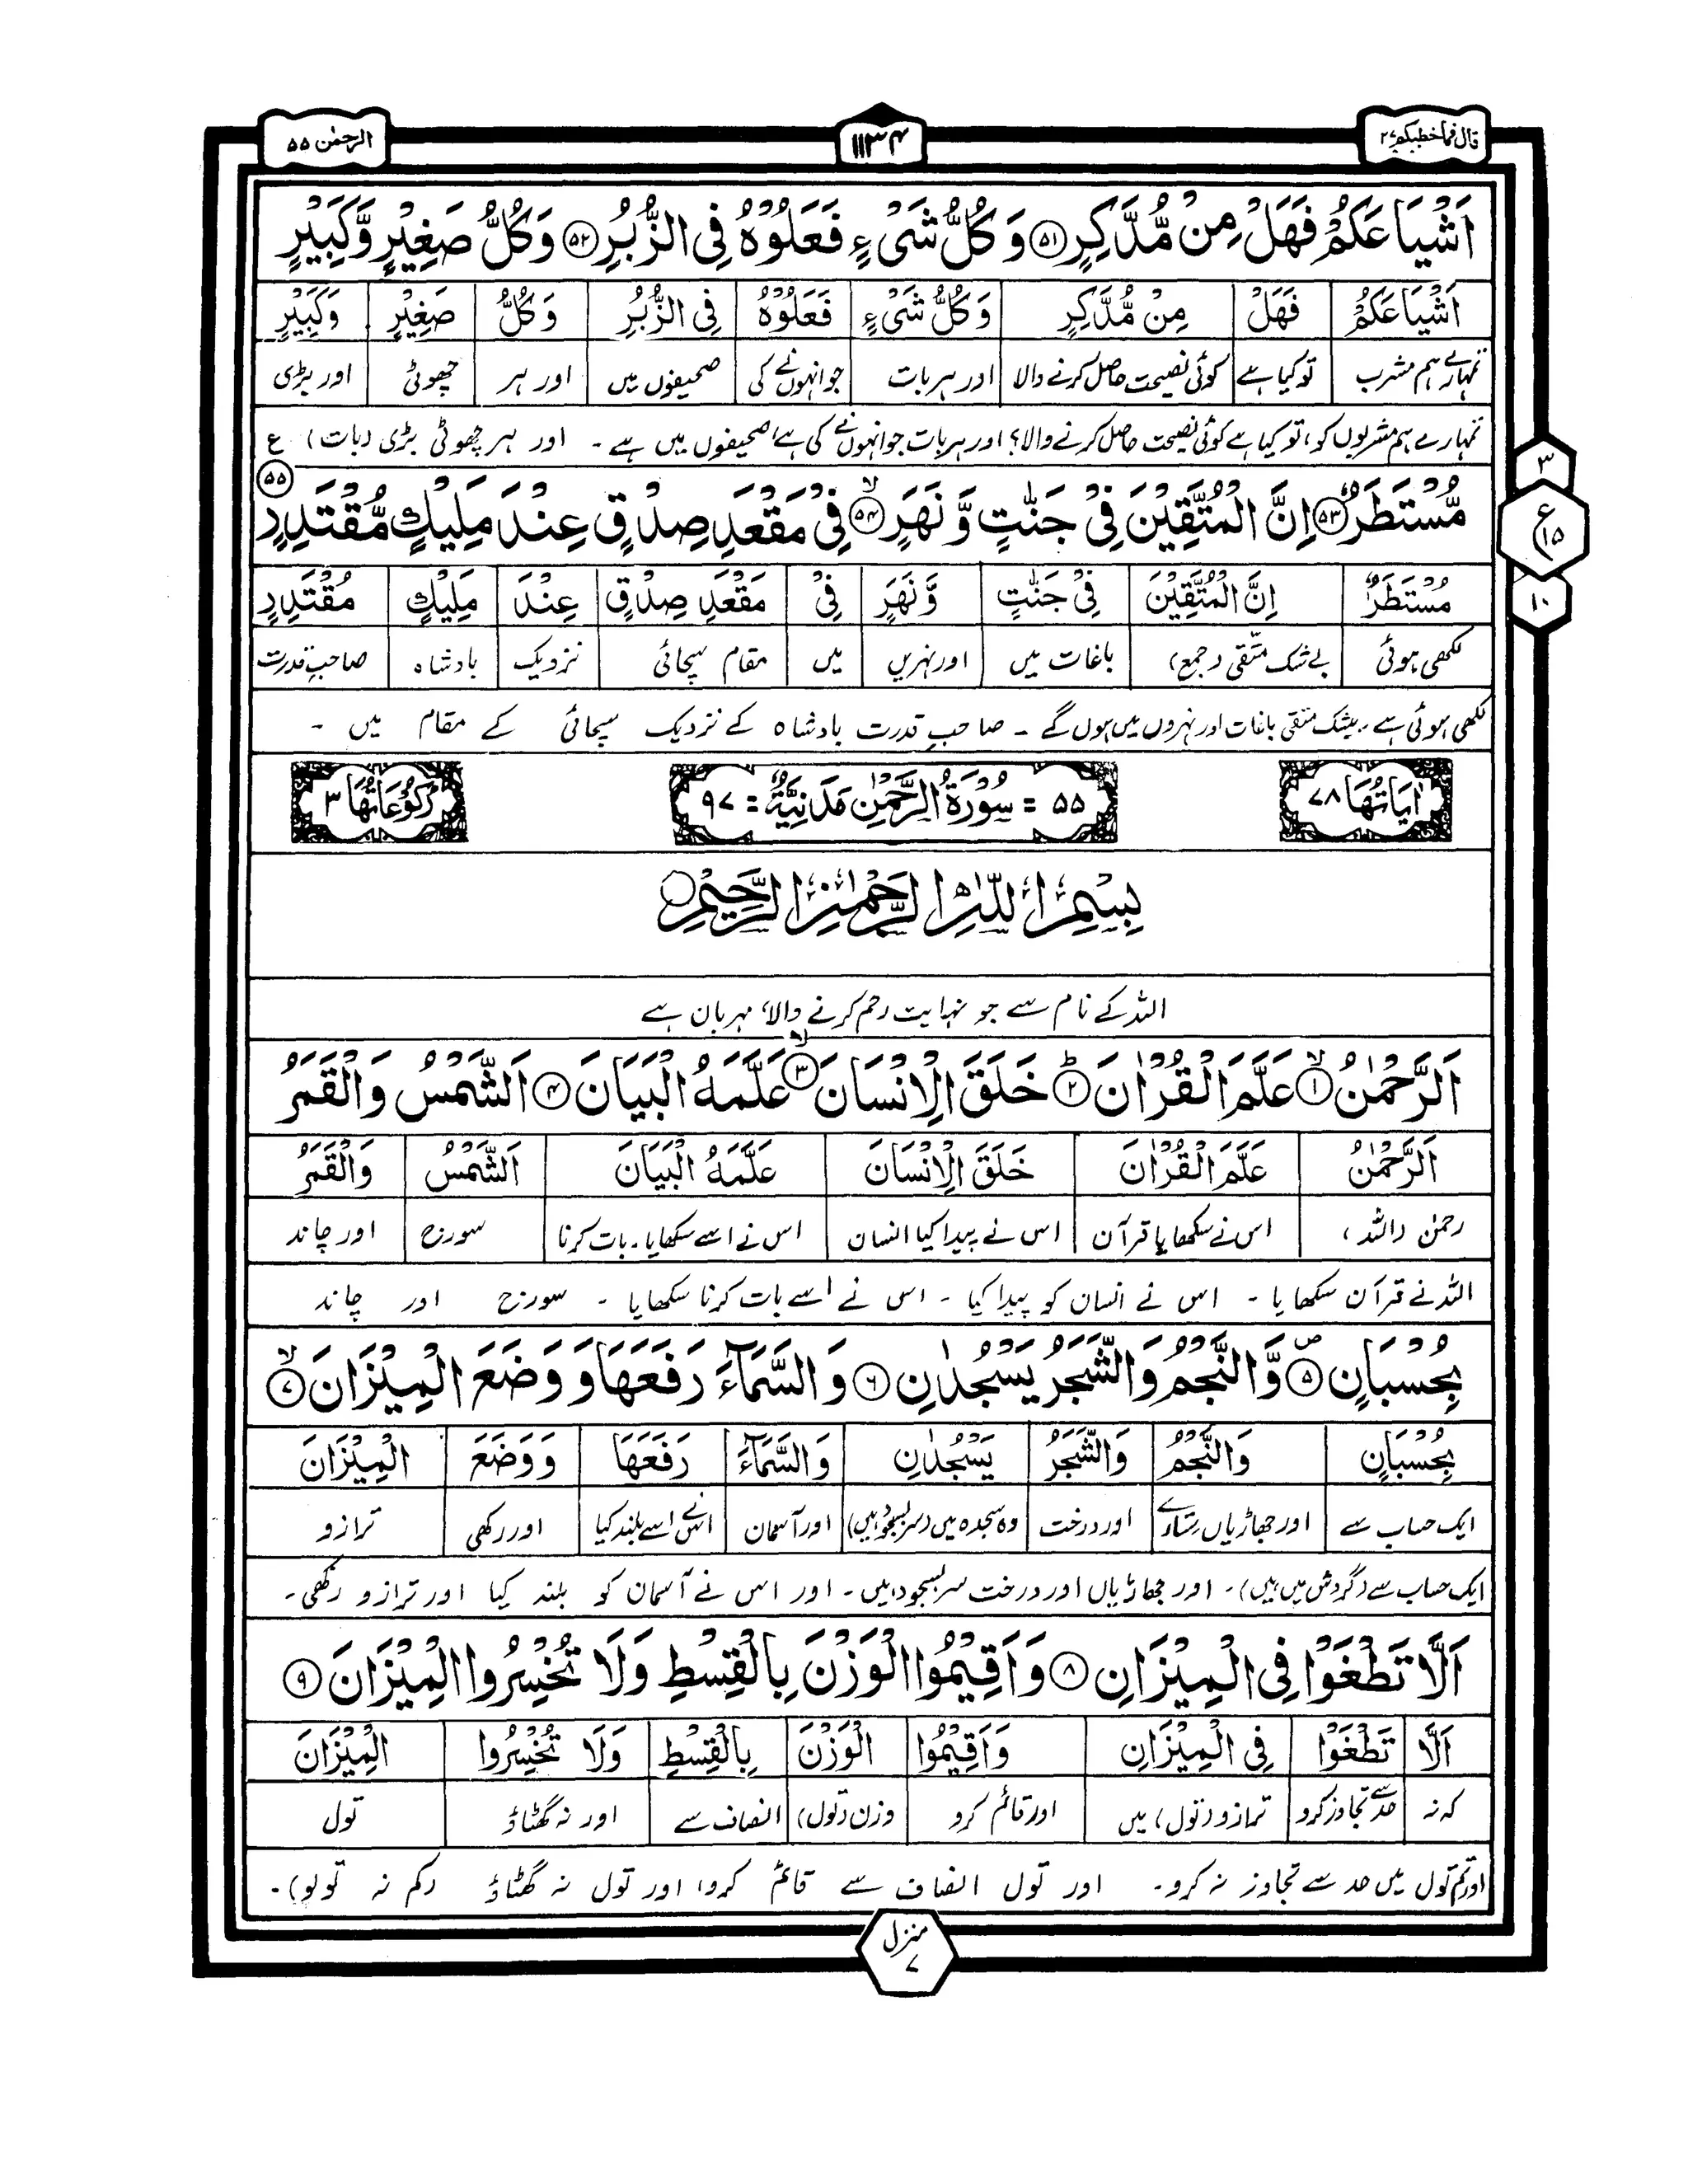 قال فما خطبكم ٢٧
١١٣٤
الرحمٰن ٥٥
اَشْيَاعَكُمْ فَهَلْ مِنْ مُّدَّكِرٍ ﴿٥١﴾ وَكُلُّ شَىْءٍ فَعَلُوْهُ فِى الزُّبُرِ ﴿٥٢﴾ وَكُلُّ صَغِيْرٍ وَّكَبِيْرٍ
اَشْيَاعَكُمْ | فَهَلْ | مِنْ مُّدَّكِرٍ | وَكُلُّ شَىْءٍ | فَعَلُوْهُ | فِى الزُّبُرِ | وَكُلُّ | صَغِيْرٍ | وَّكَبِيْرٍ
تمہارے ہم مشرب | تو کیا ہے | کوئی نصیحت حاصل کرنے والا | اور ہر بات | جو انہوں نے کی | صحیفوں میں | اور ہر | چھوٹی | اور بڑی
تمہارے ہم مشربوں کو، تو کیا ہے کوئی نصیحت حاصل کرنے والا؟ اور ہر بات جو انہوں نے کی ہے صحیفوں میں ہے۔ اور ہر چھوٹی بڑی (بات) ع
مُّسْتَطَرٌ ﴿٥٣﴾ اِنَّ الْمُتَّقِيْنَ فِىْ جَنّٰتٍ وَّنَهَرٍ ﴿٥٤﴾ فِىْ مَقْعَدِ صِدْقٍ عِنْدَ مَلِيْكٍ مُّقْتَدِرٍ ﴿٥٥﴾
٣
ع ١٥
١٠
مُسْتَطَرٌ | اِنَّ الْمُتَّقِيْنَ | فِىْ جَنّٰتٍ | وَّنَهَرٍ | فِىْ | مَقْعَدِ صِدْقٍ | عِنْدَ | مَلِيْكٍ | مُقْتَدِرٍ
لکھی ہوئی | بے شک متقی (جمع) | باغات میں | اور نہریں | میں | مقام سچائی | نزدیک | بادشاہ | صاحبِ قدرت
لکھی ہوئی ہے۔ بیشک متقی باغات اور نہروں میں ہوں گے۔ صاحبِ قدرت بادشاہ کے نزدیک سچائی کے مقام میں۔
اٰيَاتُهَا ٧٨
٥٥ = سُوْرَةُ الرَّحْمٰنِ مَدَنِيَّةٌ = ٩٧
رُكُوْعَاتُهَا ٣
بِسْمِ اللّٰهِ الرَّحْمٰنِ الرَّحِيْمِ
اللہ کے نام سے جو نہایت رحم کرنے والا، مہربان ہے
اَلرَّحْمٰنُ ﴿١﴾ عَلَّمَ الْقُرْاٰنَ ﴿٢﴾ خَلَقَ الْاِنْسَانَ ﴿٣﴾ عَلَّمَهُ الْبَيَانَ ﴿٤﴾ اَلشَّمْسُ وَالْقَمَرُ
اَلرَّحْمٰنُ | عَلَّمَ الْقُرْاٰنَ | خَلَقَ الْاِنْسَانَ | عَلَّمَهُ الْبَيَانَ | اَلشَّمْسُ | وَالْقَمَرُ
رحمٰن (اللہ) | اس نے سکھایا قرآن | اس نے پیدا کیا انسان | اس نے اسے سکھایا۔ بات کرنا | سورج | اور چاند
اللہ نے قرآن سکھایا۔ اس نے انسان کو پیدا کیا۔ اس نے اسے بات کرنا سکھایا۔ سورج اور چاند
بِحُسْبَانٍ ﴿٥﴾ وَّالنَّجْمُ وَالشَّجَرُ يَسْجُدٰنِ ﴿٦﴾ وَالسَّمَآءَ رَفَعَهَا وَوَضَعَ الْمِيْزَانَ ﴿٧﴾
بِحُسْبَانٍ | وَالنَّجْمُ | وَالشَّجَرُ | يَسْجُدٰنِ | وَالسَّمَآءَ | رَفَعَهَا | وَوَضَعَ | الْمِيْزَانَ
ایک حساب سے | اور جھاڑیاں ستارے | اور درخت | وہ سجدہ میں (سربسجود ہیں) | اور آسمان | اس نے اسے بلند کیا | اور رکھی | ترازو
ایک حساب سے (گردش میں ہیں)۔ اور جھاڑیاں اور درخت سربسجود ہیں۔ اور اس نے آسمان کو بلند کیا اور ترازو رکھی۔
اَلَّا تَطْغَوْا فِى الْمِيْزَانِ ﴿٨﴾ وَاَقِيْمُوا الْوَزْنَ بِالْقِسْطِ وَلَا تُخْسِرُوا الْمِيْزَانَ ﴿٩﴾
اَلَّا | تَطْغَوْا | فِى الْمِيْزَانِ | وَاَقِيْمُوا | الْوَزْنَ | بِالْقِسْطِ | وَلَا تُخْسِرُوا | الْمِيْزَانَ
کہ نہ | حد سے تجاوز کرو | ترازو (تول) میں | اور قائم کرو | وزن (تول) | انصاف سے | اور نہ گھٹاؤ | تول
اور تم تول میں حد سے تجاوز نہ کرو۔ اور تول انصاف سے قائم کرو، اور تول نہ گھٹاؤ (کم نہ تولو)۔
منزل ٧